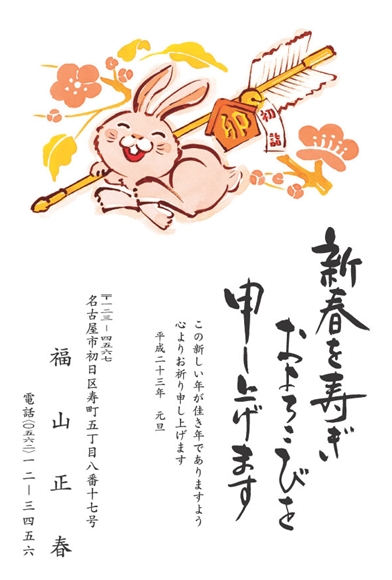 卯
初詣
新春を寿ぎ
およろこびを
申し上げます
この新しい年が佳き年でありますよう
心よりお祈り申し上げます
平成二十三年 元旦
〒一二三－四五六七
名古屋市初日区寿町五丁目八番十七号
福山正春
電話(〇五六二)一二－三四五六